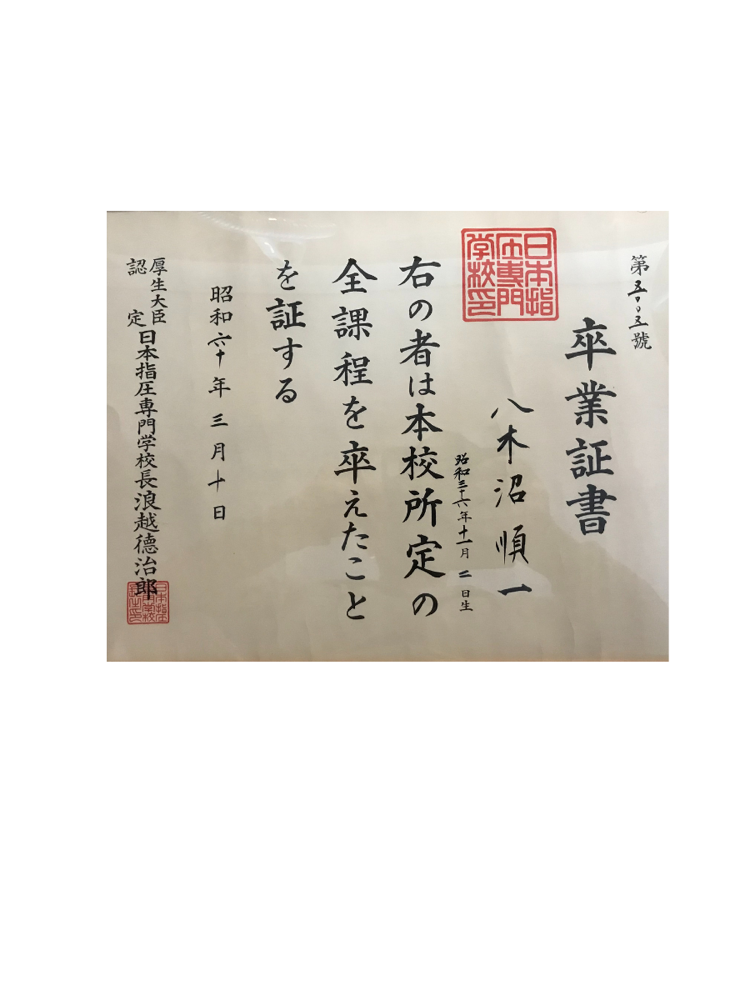 第五〇〇五號
卒業証書
八木沼順一
昭和三十六年十一月二日生
日本指
圧専門
学校印
右の者は本校所定の
全課程を卒えたこと
を証する
昭和六十年三月十日
厚生大臣
認定
日本指圧専門学校長浪越德治郎